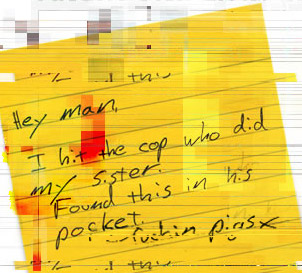 Hey man,
I hit the cop who did
my sister.
Found this in his
pocket.
Fuckin pigs